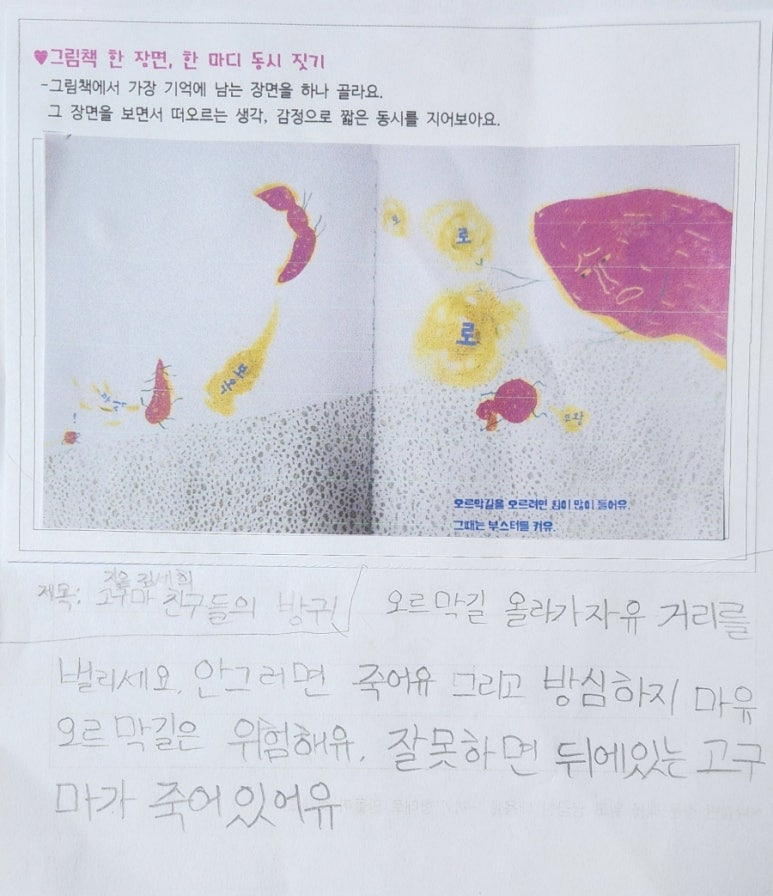 ♥그림책 한 장면, 한 마디 동시 짓기
-그림책에서 가장 기억에 남는 장면을 하나 골라요.
그 장면을 보면서 떠오르는 생각, 감정으로 짧은 동시를 지어보아요.
로
로
뽀오옹
!
오르막길을 오르려면 힘이 많이 들어유.
그때는 부스터를 켜유.
지음 김세희
제목: 고구마 친구들의 방귀
오르막길 올라가자유 거리를
벌리세요. 안그러면 죽어유 그리고 방심하지 마유
오르막길은 위험해유. 잘못하면 뒤에있는 고구
마가 죽어있어유